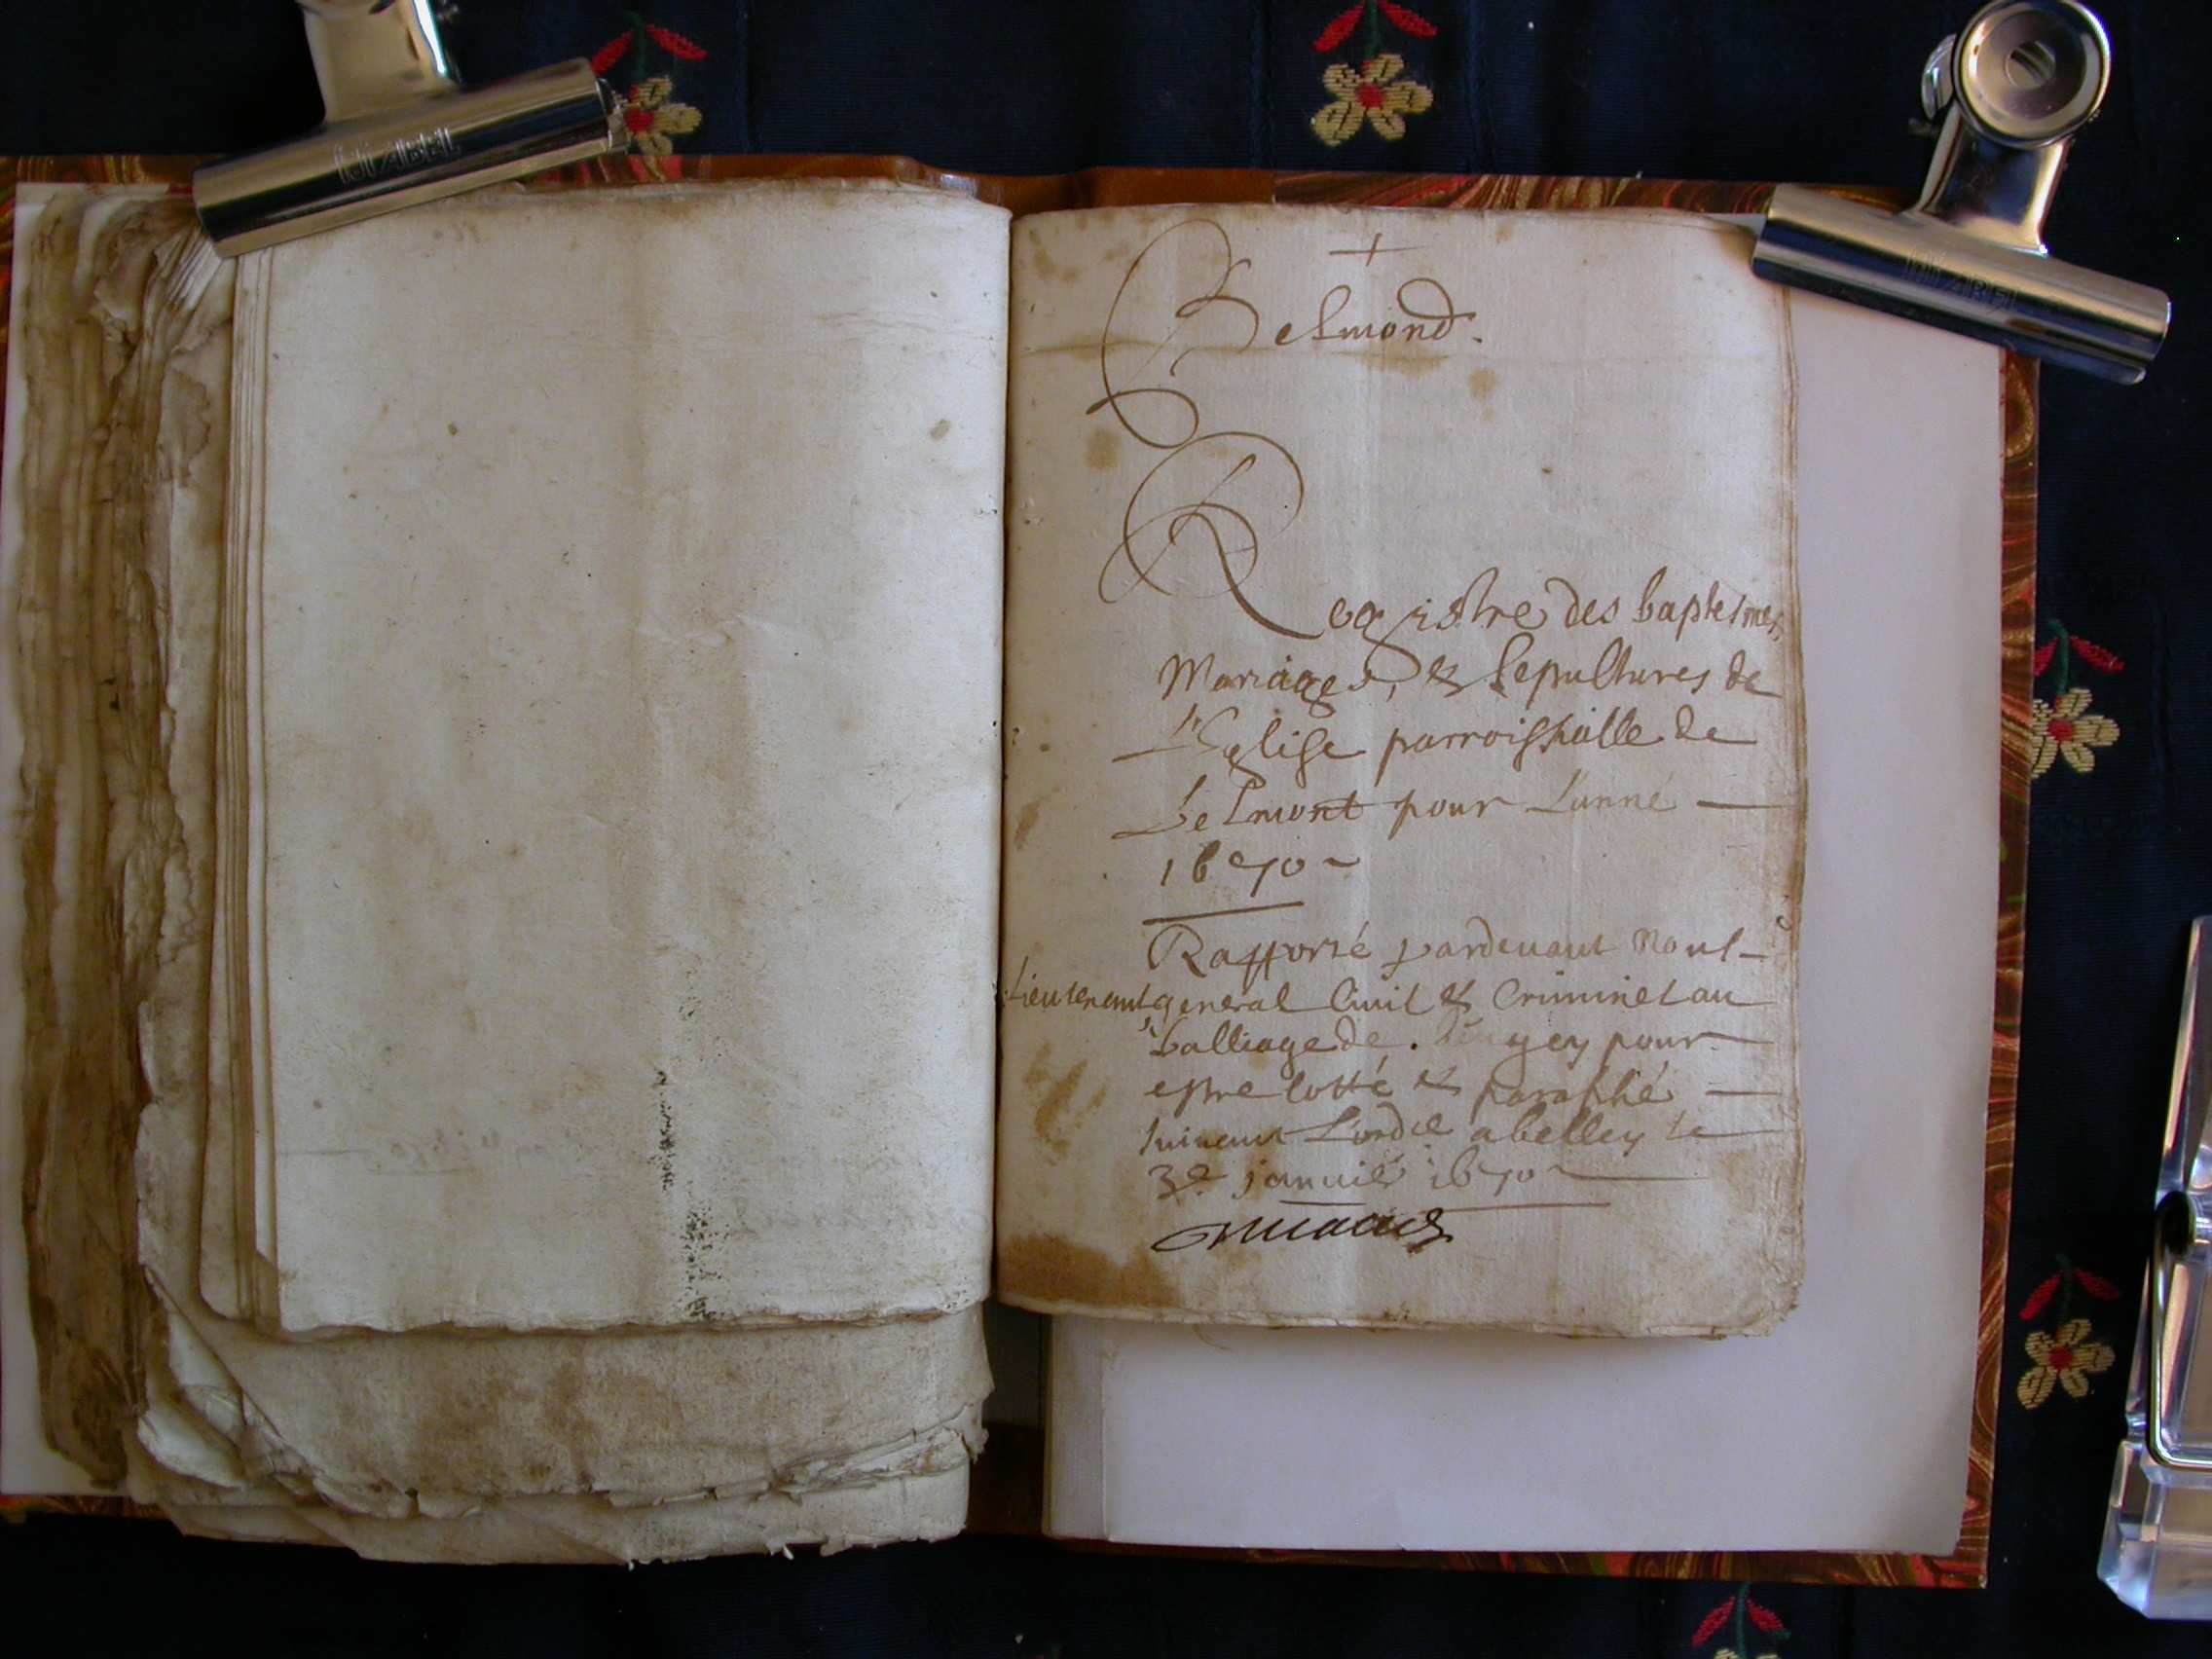 +
Belmond.
Registre des baptesmes,
Mariages, & Sepultures de
l'Eglise parroissialle de
belmont pour L'anné
1670
Rapporté pardeuant nous
Lieutenant general Ciuil & Criminel au
balliage de gey pour
estre cotté & paraphé
suiuant L'ordce abelley le
3e januier 1670